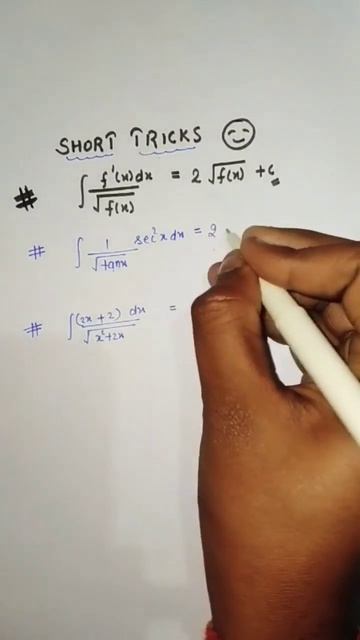 SHORT TRICKS
# ∫ f'(x)dx / √f(x) = 2 √f(x) + c
# ∫ 1/√tanx sec²x dx = 2
# ∫ (2x + 2) dx / √x²+2x =